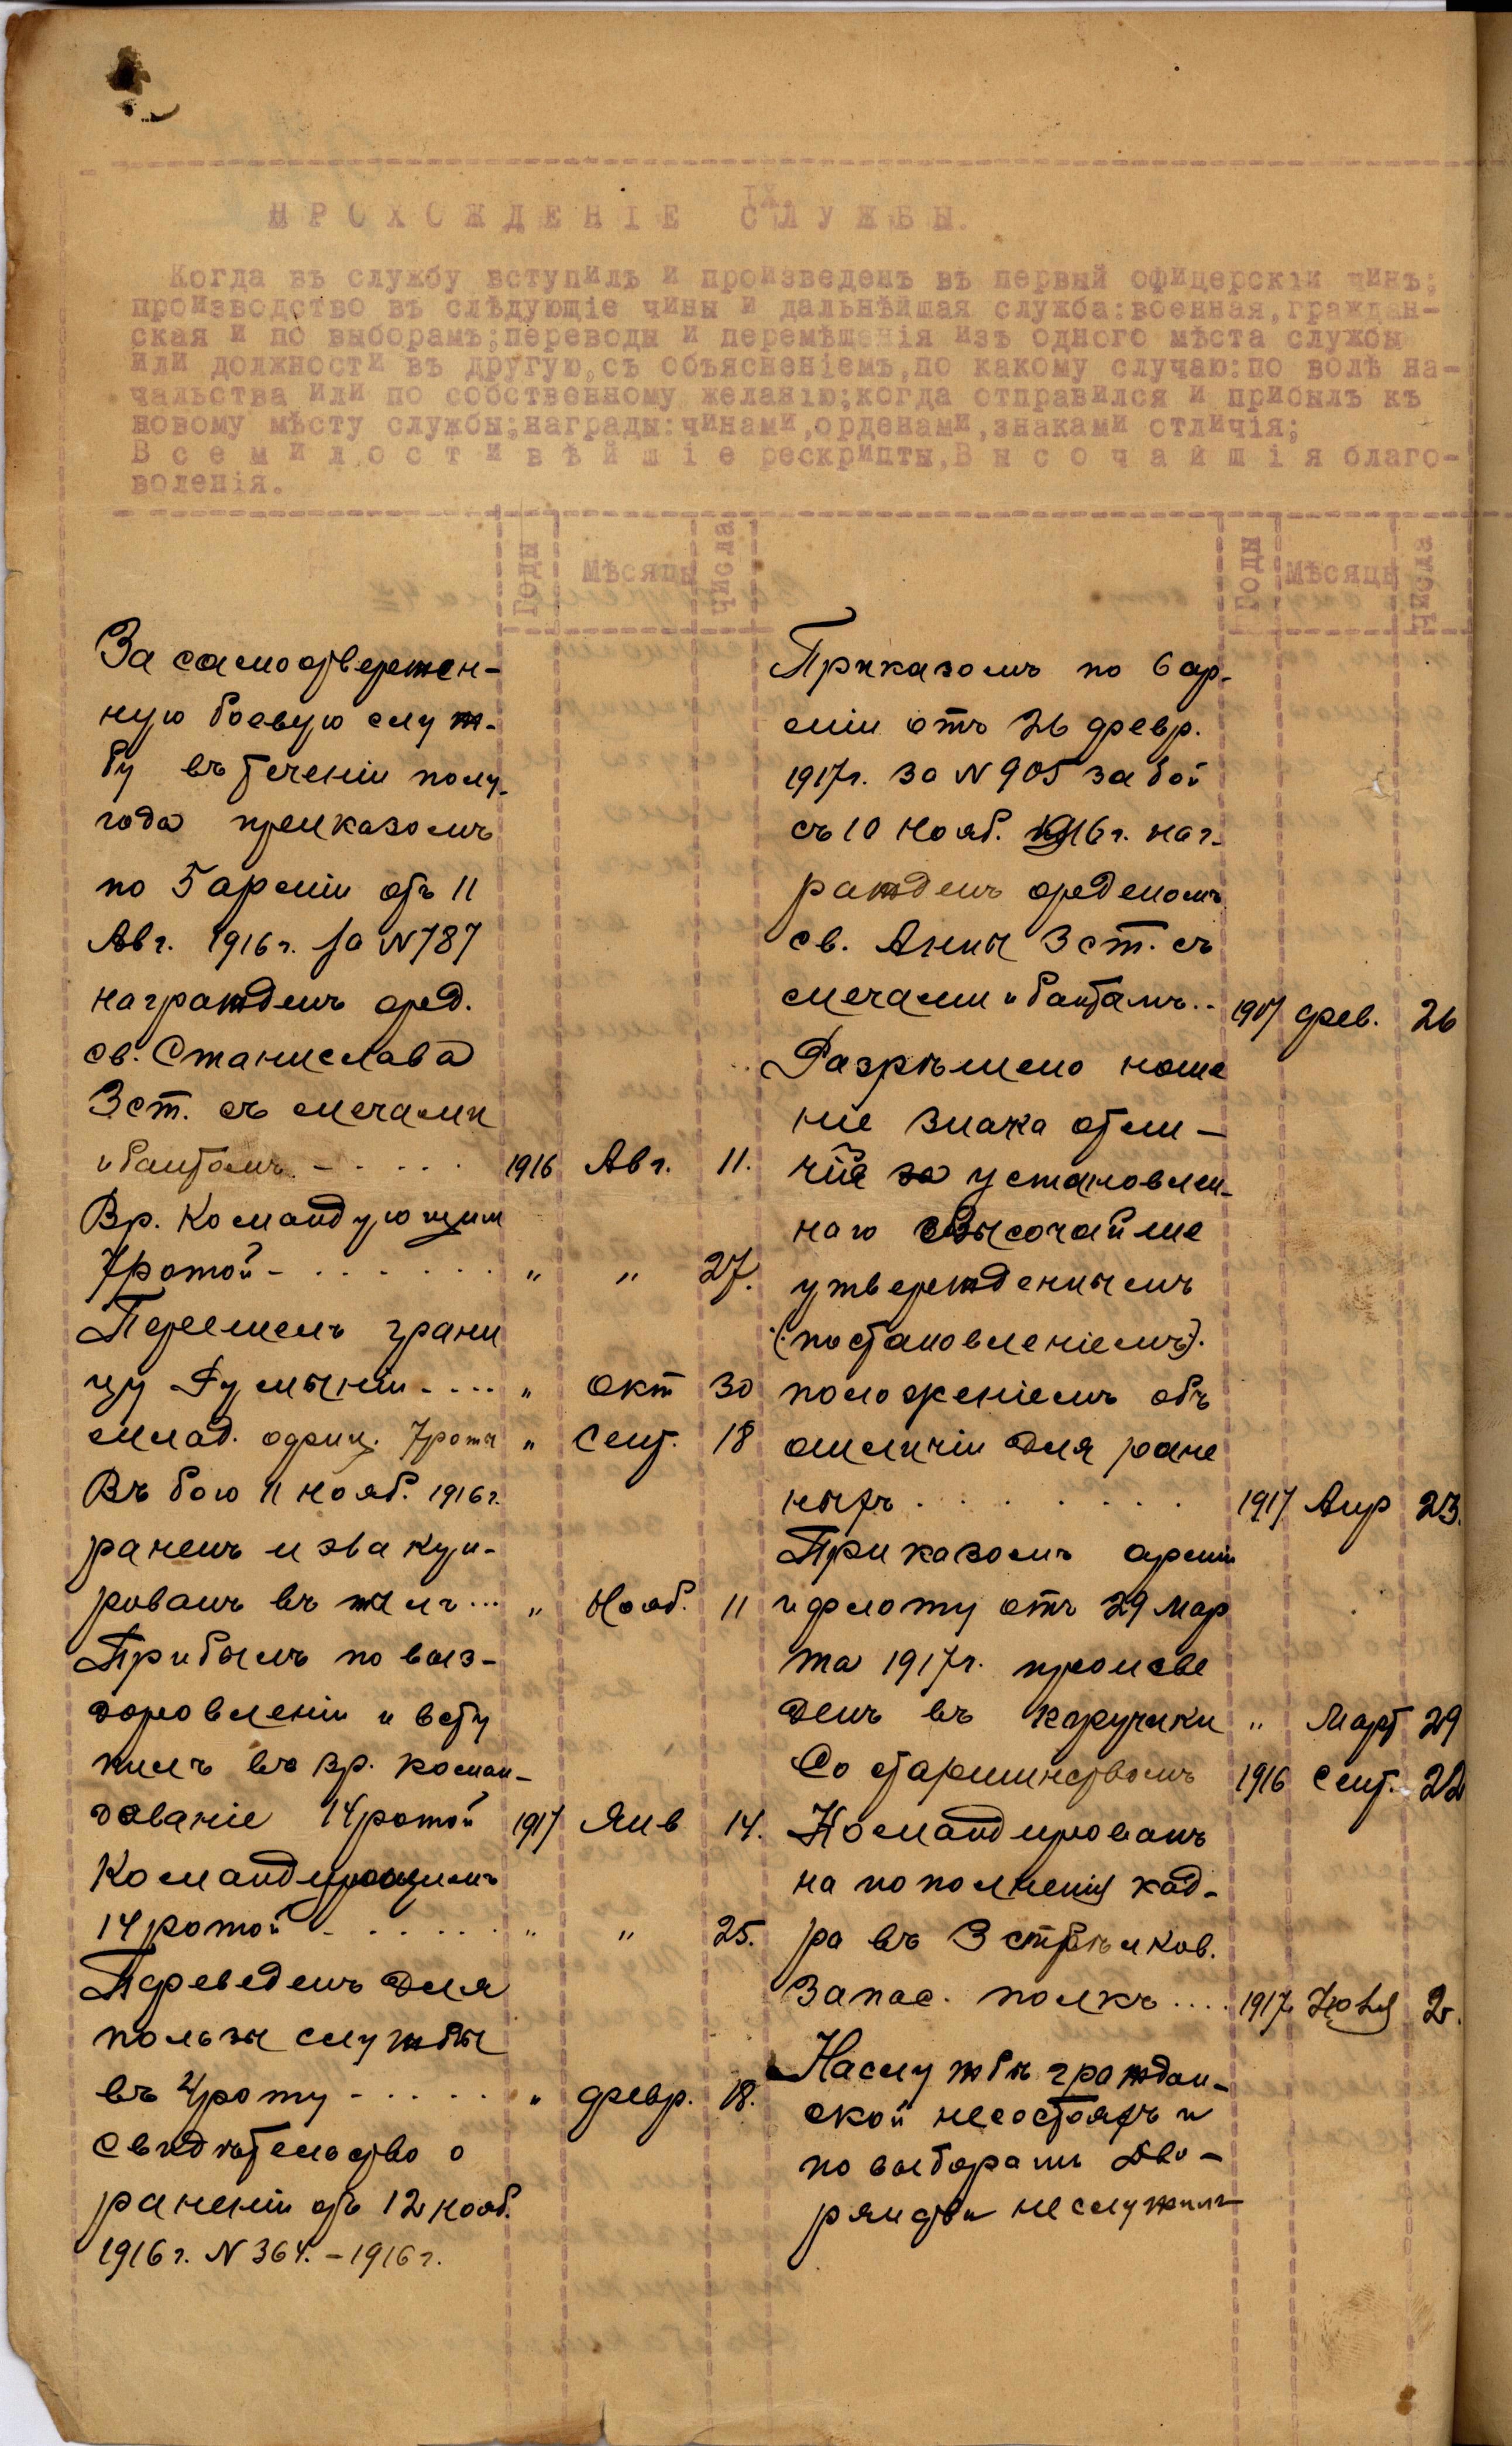 IX.
ПРОХОЖДЕНІЕ СЛУЖБЫ.
Когда въ службу вступилъ и произведенъ въ первый офицерскій чинъ;
производство въ слѣдующіе чины и дальнѣйшая служба:военная,граждан-
ская и по выборамъ;переводы и перемѣщенія изъ одного мѣста службы
или должности въ другую,съ объясненіемъ,по какому случаю:по волѣ на-
чальства или по собственному желанію;когда отправился и прибылъ къ
новому мѣсту службы;награды:чинами,орденами,знаками отличія;
Всемилостивѣйшіе рескрипты,Высочайшія благо-
воленія.
Годы Мѣсяцы Числа
За самоотвержен-
ную боевую служ-
бу въ теченіи полу-
года приказомъ
по 5 арміи отъ 11
Авг. 1916 г. за N 787
награжденъ орд.
св. Станислава
3 ст. съ мечами
и бантомъ - . . . . 1916 Авг. 11.
Вр. Командующим
7 ротой - . . . . . . " " 27.
Перешелъ грани
цу Румыніи . . . . " Окт 30
млад. офиц. 7 роты " Сент. 18
Въ бою 11 нояб. 1916 г.
раненъ и эвакуи-
рованъ въ тылъ ... " Нояб. 11
Прибылъ по выз-
доровленіи и всту
пилъ въ вр. коман-
дованіе 14 ротой 1917 Янв 14.
Командующимъ
14 ротой - . . . . . " " 25.
Переведенъ для
пользы службы
въ роту - . . . . . " февр. 18.
Свидѣтельство о
раненіи отъ 12 нояб.
1916 г. N 364. - 1916 г.
Годы Мѣсяцы Числа
Приказомъ по 6 ар-
міи отъ 26 февр.
1917 г. за N 905 за бой
съ 10 Нояб. 1916 г. наг-
ражденъ орденомъ
св. Анны 3 ст. съ
мечами и бантамъ . . 1917 фев. 26
Разрѣшено ноше
ніе знака отли-
чія установлен-
наго Высочайше
утвержденнымъ
(постановленіемъ).
положеніемъ объ
отличіи для ране
ныхъ . . . . . . . . 1917 Апр 23.
Приказомъ арміи
и флоту отъ 29 мар
та 1917 г. произве
денъ въ поручики " Март 29
Со старшинствомъ 1916 Сент. 22
Командированъ
на пополненія кад-
ра въ 3 стрѣлков.
Запас. полкъ . . . . 1917 Іюня 2.
На службѣ граждан-
ской не состоялъ и
по выборамъ Дво-
рянства не служилъ